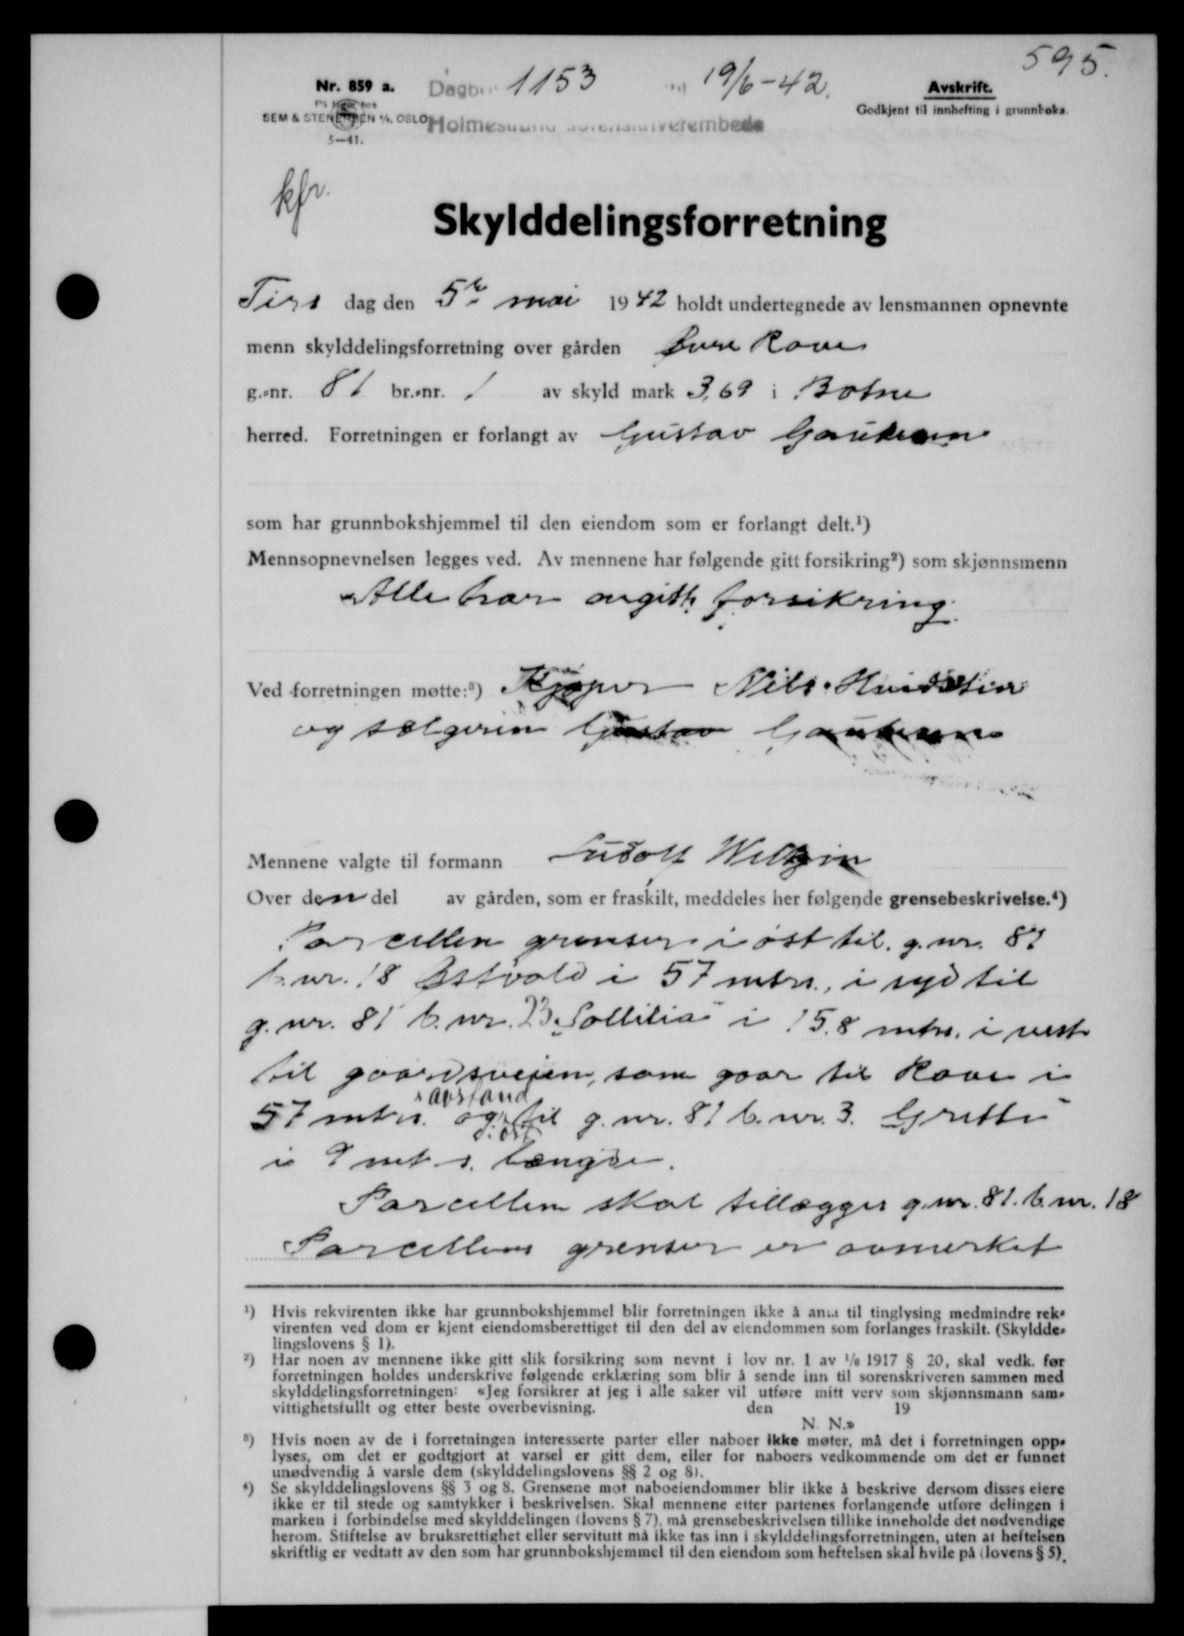 595.
Nr. 859 a.
Dagb 1153 19/6-42.
Avskrift.
Godkjent til innhefting i grunnboka.
SEM & STENERSEN A/S, OSLO
Holmestrand sorenskriverembede
5-41.
kfr.
Skylddelingsforretning
Tirs dag den 5te mai 1942 holdt undertegnede av lensmannen opnevnte
menn skylddelingsforretning over gården Øvre Rove
g.-nr. 81 br.-nr. 1 av skyld mark 3,69 i Botne
herred. Forretningen er forlangt av Gustav
som har grunnbokshjemmel til den eiendom som er forlangt delt.¹)
Mennsopnevnelsen legges ved. Av mennene har følgende gitt forsikring²) som skjønnsmenn
Alle har avgitt forsikring.
Ved forretningen møtte:³) Kjøper Nils
og sælgeren Gustav
Mennene valgte til formann
Over den del av gården, som er fraskilt, meddeles her følgende grensebeskrivelse.⁴)
Parcellen grenser i øst til. g.nr. 81
b.nr. 18 Østvold i 57 mtrs., i syd til
g.nr. 81 b.nr. 23 "Sollilia" i 15.8 mtrs. i vest
til gaardsveien, som gaar til Rove i
57 mtrs. avstand og til g.nr. 81 b.nr. 3.
i 9 mtrs. længde.
Parcellen skal tillægges g.nr. 81. b.nr. 18
Parcellens grenser er avmerket
¹) Hvis rekvirenten ikke har grunnbokshjemmel blir forretningen ikke å anta til tinglysing medmindre rek-
virenten ved dom er kjent eiendomsberettiget til den del av eiendommen som forlanges fraskilt. (Skyldde-
lingslovens § 1).
²) Har noen av mennene ikke gitt slik forsikring som nevnt i lov nr. 1 av 1/6 1917 § 20, skal vedk. før
forretningen holdes underskrive følgende erklæring som blir å sende inn til sorenskriveren sammen med
skylddelingsforretningen: «Jeg forsikrer at jeg i alle saker vil utføre mitt verv som skjønnsmann sam-
vittighetsfullt og etter beste overbevisning. den 19
N. N.»
³) Hvis noen av de i forretningen interesserte parter eller naboer ikke møter, må det i forretningen opp-
lyses, om det er godtgjort at varsel er gitt dem, eller for naboers vedkommende om det er funnet
unødvendig å varsle dem (skylddelingslovens §§ 2 og 8).
⁴) Se skylddelingslovens §§ 3 og 8. Grensene mot naboeiendommer blir ikke å beskrive dersom disses eiere
ikke er til stede og samtykker i beskrivelsen. Skal mennene etter partenes forlangende utføre delingen i
marken i forbindelse med skylddelingen (lovens § 7), må grensebeskrivelsen tillike inneholde det nødvendige
herom. Stiftelse av bruksrettighet eller servitutt må ikke tas inn i skylddelingsforretningen, uten at heftelsen
skriftlig er vedtatt av den som har grunnbokshjemmel til den eiendom som heftelsen skal hvile på (lovens § 5).